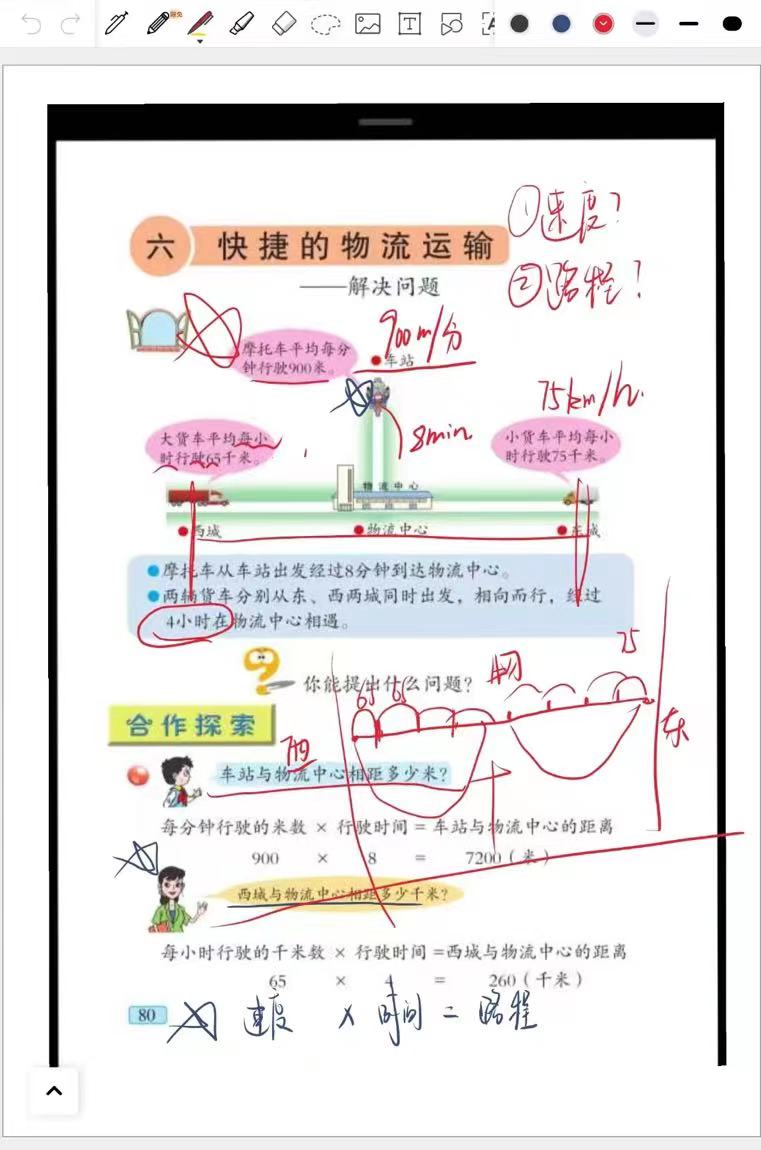 ①速度?
六 快捷的物流运输
②路程?
——解决问题
900m/分
摩托车平均每分
钟行驶900米。
车站
75km/h
8min
大货车平均每小
时行驶65千米。
小货车平均每小
时行驶75千米。
物流中心
西城 物流中心 东城
摩托车从车站出发经过8分钟到达物流中心。
两辆货车分别从东、西两城同时出发，相向而行，经过
4小时在物流中心相遇。
75
你能提出什么问题?
65 65
合作探索
东
西
车站与物流中心相距多少米?
每分钟行驶的米数 × 行驶时间 = 车站与物流中心的距离
900 × 8 = 7200（米）
西城与物流中心相距多少千米?
每小时行驶的千米数 × 行驶时间 =西城与物流中心的距离
65 × 4 = 260（千米）
80
速度 × 时间 = 路程